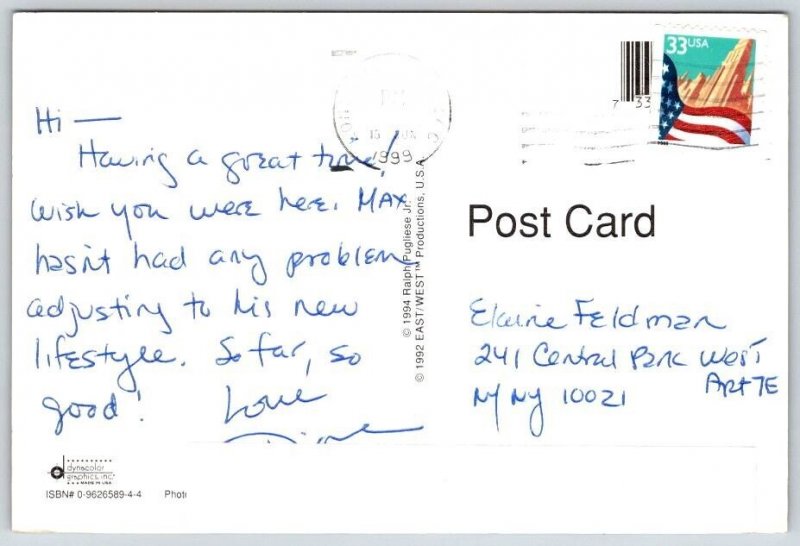 33USA
7 33
15 JUN
1999
Hi —
Having a great time!
Wish you were here. MAX
hasn't had any problem
adjusting to his new
lifestyle. So far, so
good! Love
© 1994 Ralph Pugliese Jr.
© 1992 EAST/WEST™ Productions, U.S.A.
Post Card
Elaine Feldman
241 Central Park West
Apt 7E
NY NY 10021
dynacolor
graphics, inc.
MADE IN USA
ISBN# 0-9626589-4-4 Phot